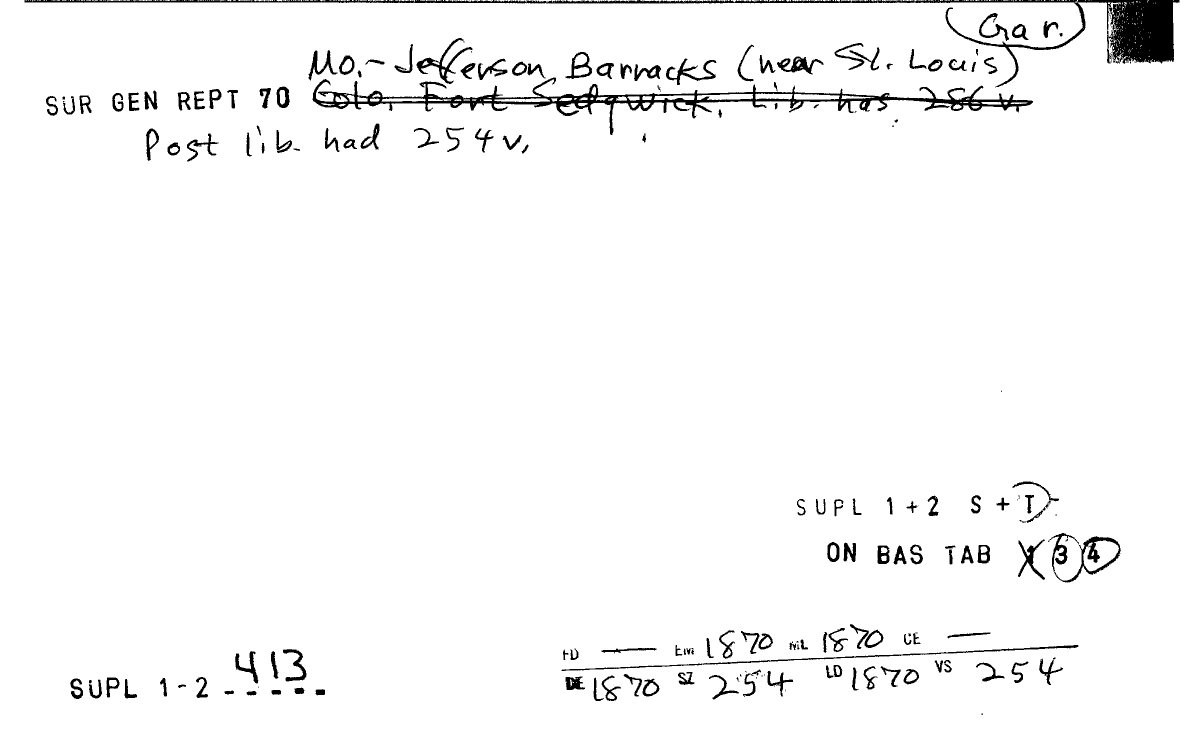 Gar.
Mo.- Jefferson Barracks (near St. Louis)
SUR GEN REPT 70 Colo. Fort Sedgwick. Lib. has 286 v.
Post lib. had 254 v.
SUPL 1+2 S+T
ON BAS TAB 3 4
FD — EM 1870 ML 1870 CE —
DE 1870 SZ 254 LD 1870 VS 254
SUPL 1-2 413